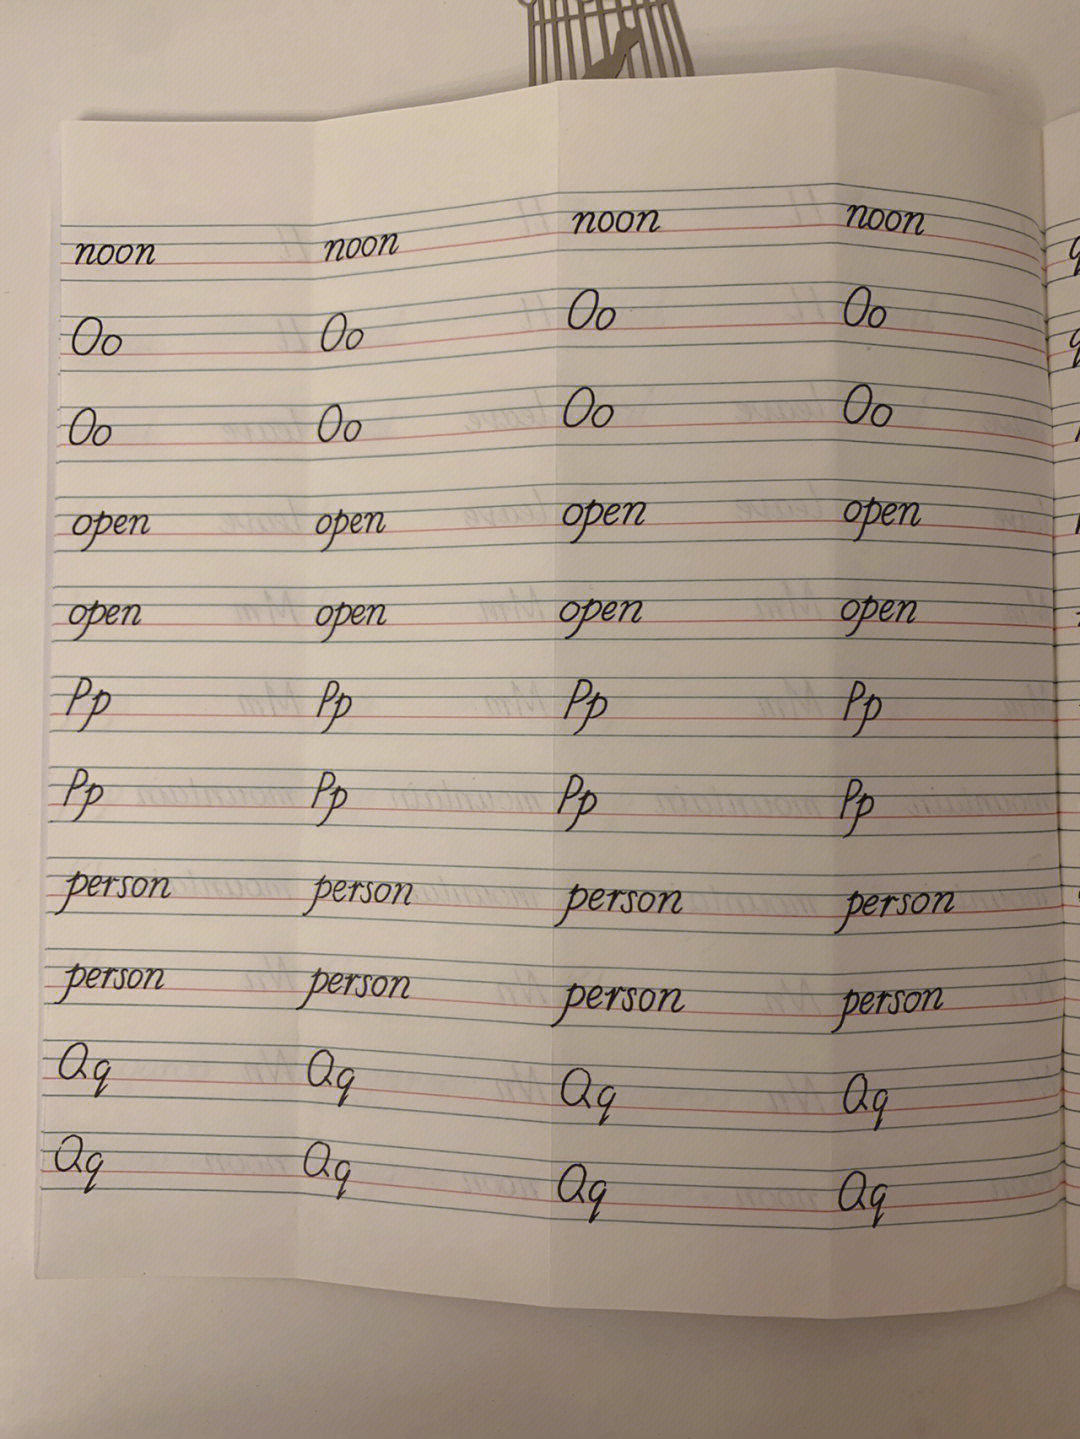 noon noon noon noon
Oo Oo Oo Oo
Oo Oo Oo Oo
open open open open
open open open open
Pp Pp Pp Pp
Pp Pp Pp Pp
person person person person
person person person person
Qq Qq Qq Qq
Qq Qq Qq Qq